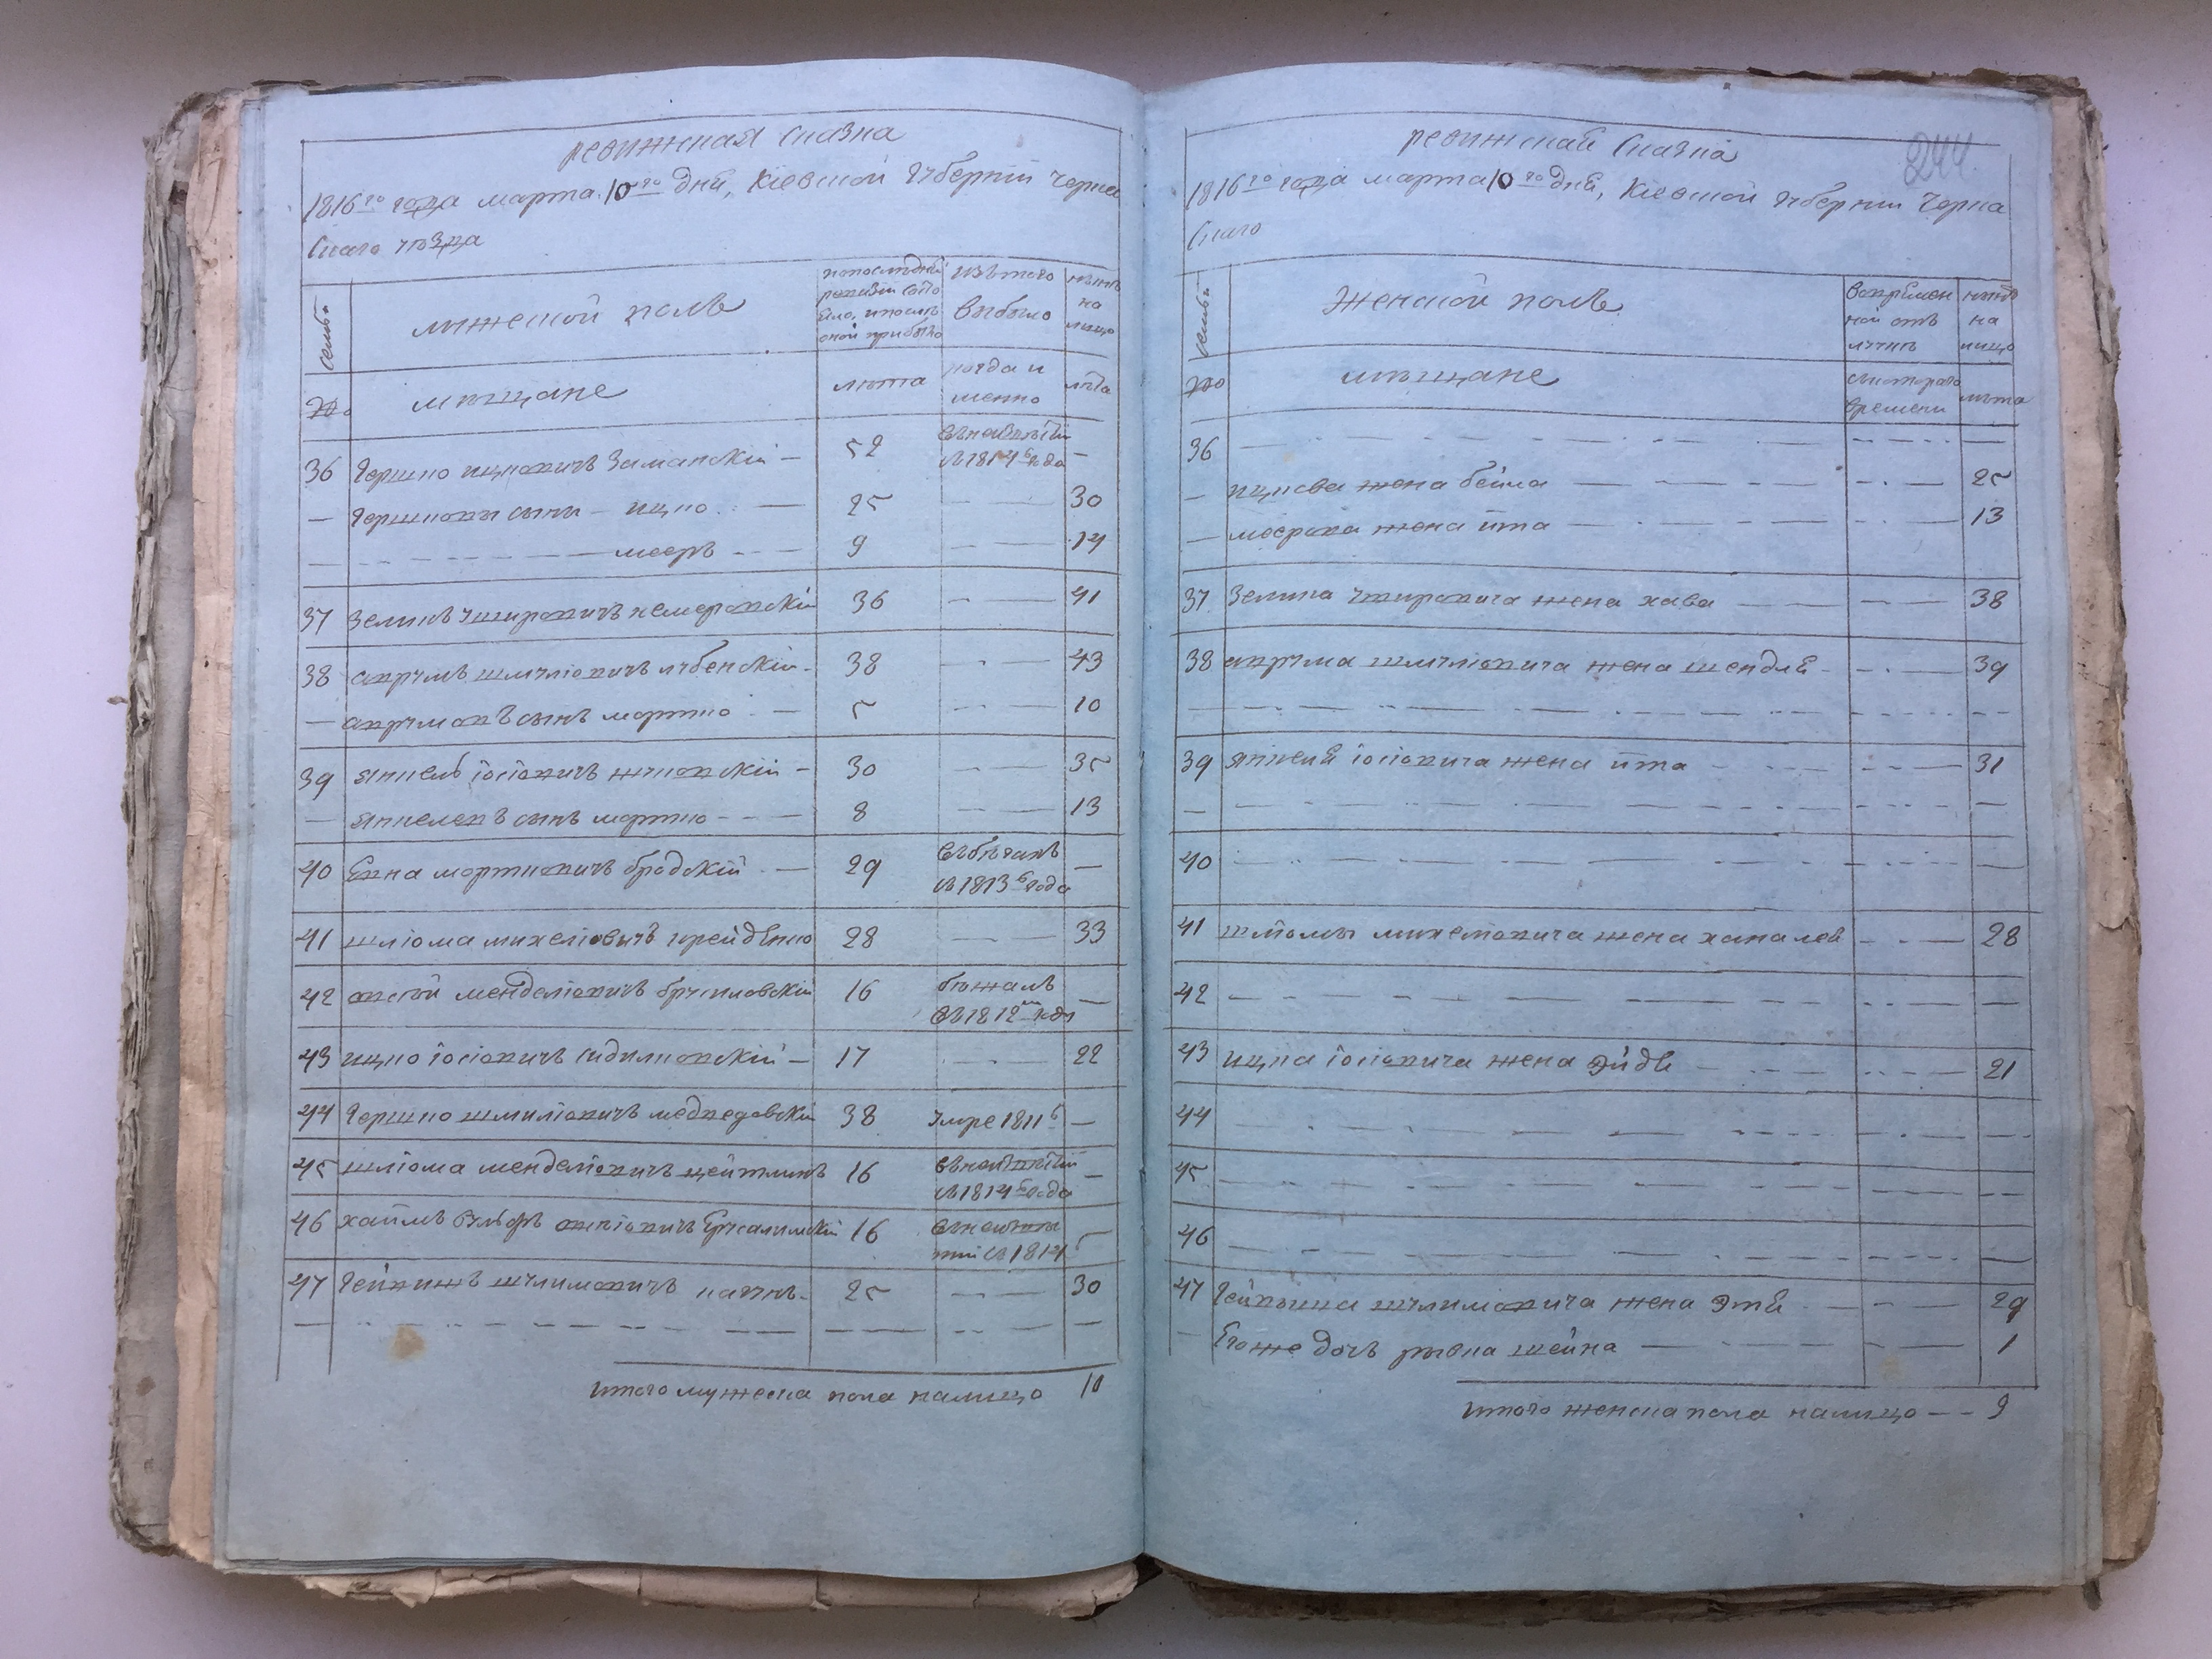 ревижская сказка
1816го года марта 10го дня, Кіевской губерніи Черка
скаго уезда
семьи
мужеской полъ
попоследней
ревизіи состо
яло, и после
оной прибыло
изъ того
выбыло
ныне
на
лицо
мещане
лета
когда и
менно
лета
36 Гершко ицковичъ Заманскій — 52 въ неизвестіи съ 1814 года —
— Гершковы сыны — ицко — 25 — 30
— мееръ — 9 — 14
37 Зеликъ ушировичъ немеровскій 36 — 41
38 аврумъ шмуліовичъ лубенскій — 38 — 43
— аврумовъ сынъ мортко — 5 — 10
39 янкель іосіовичъ жуковскій — 30 — 35
— янкелевъ сынъ мортко — 8 — 13
40 Евна мортковичъ бродскій — 29 въ бегахъ съ 1813 года —
41 шліома михеліовичъ крейденко 28 — 33
42 овсій менделіовичъ брусиловскій 16 бежалъ въ 1812м годе —
43 ицко іосіовичъ сидилковскій — 17 — 22
44 Гершко шмиліовичъ медведовскій 38 умре 1811 —
45 шліома менделіовичъ цейтлинъ 16 въ неизвестіи съ 1814 года —
46 хаимъ вульфъ овсіовичъ Ерусалимскій 16 въ неизвес тіи съ 1814 —
47 Гейнихъ шулимовичъ — 25 — 30
итого мужеска пола налицо 10
ревижская сказка
244
1816го года марта 10го дня, Кіевской губерніи Черка
скаго
семьи
женской полъ
во времен
ной отъ
лучке
ныне
на
лицо
мещане
съ котораго
времени
лета
36 —
— ицкова жена бейла — 25
— меерова жена ита — 13
37 Зелика ушировича жена хава — 38
38 аврума шмуліовича жена шендля — 39
39 янкеля іосіовича жена ита — 31
40 —
41 шліомы михеліовича жена хана лея — 28
42 —
43 ицка іосіовича жена эйдля — 21
44 —
45 —
46 —
47 шулимовича жена Этя — 29
Егоже дочь рывка шейна — 1
итого женска пола налицо — 9